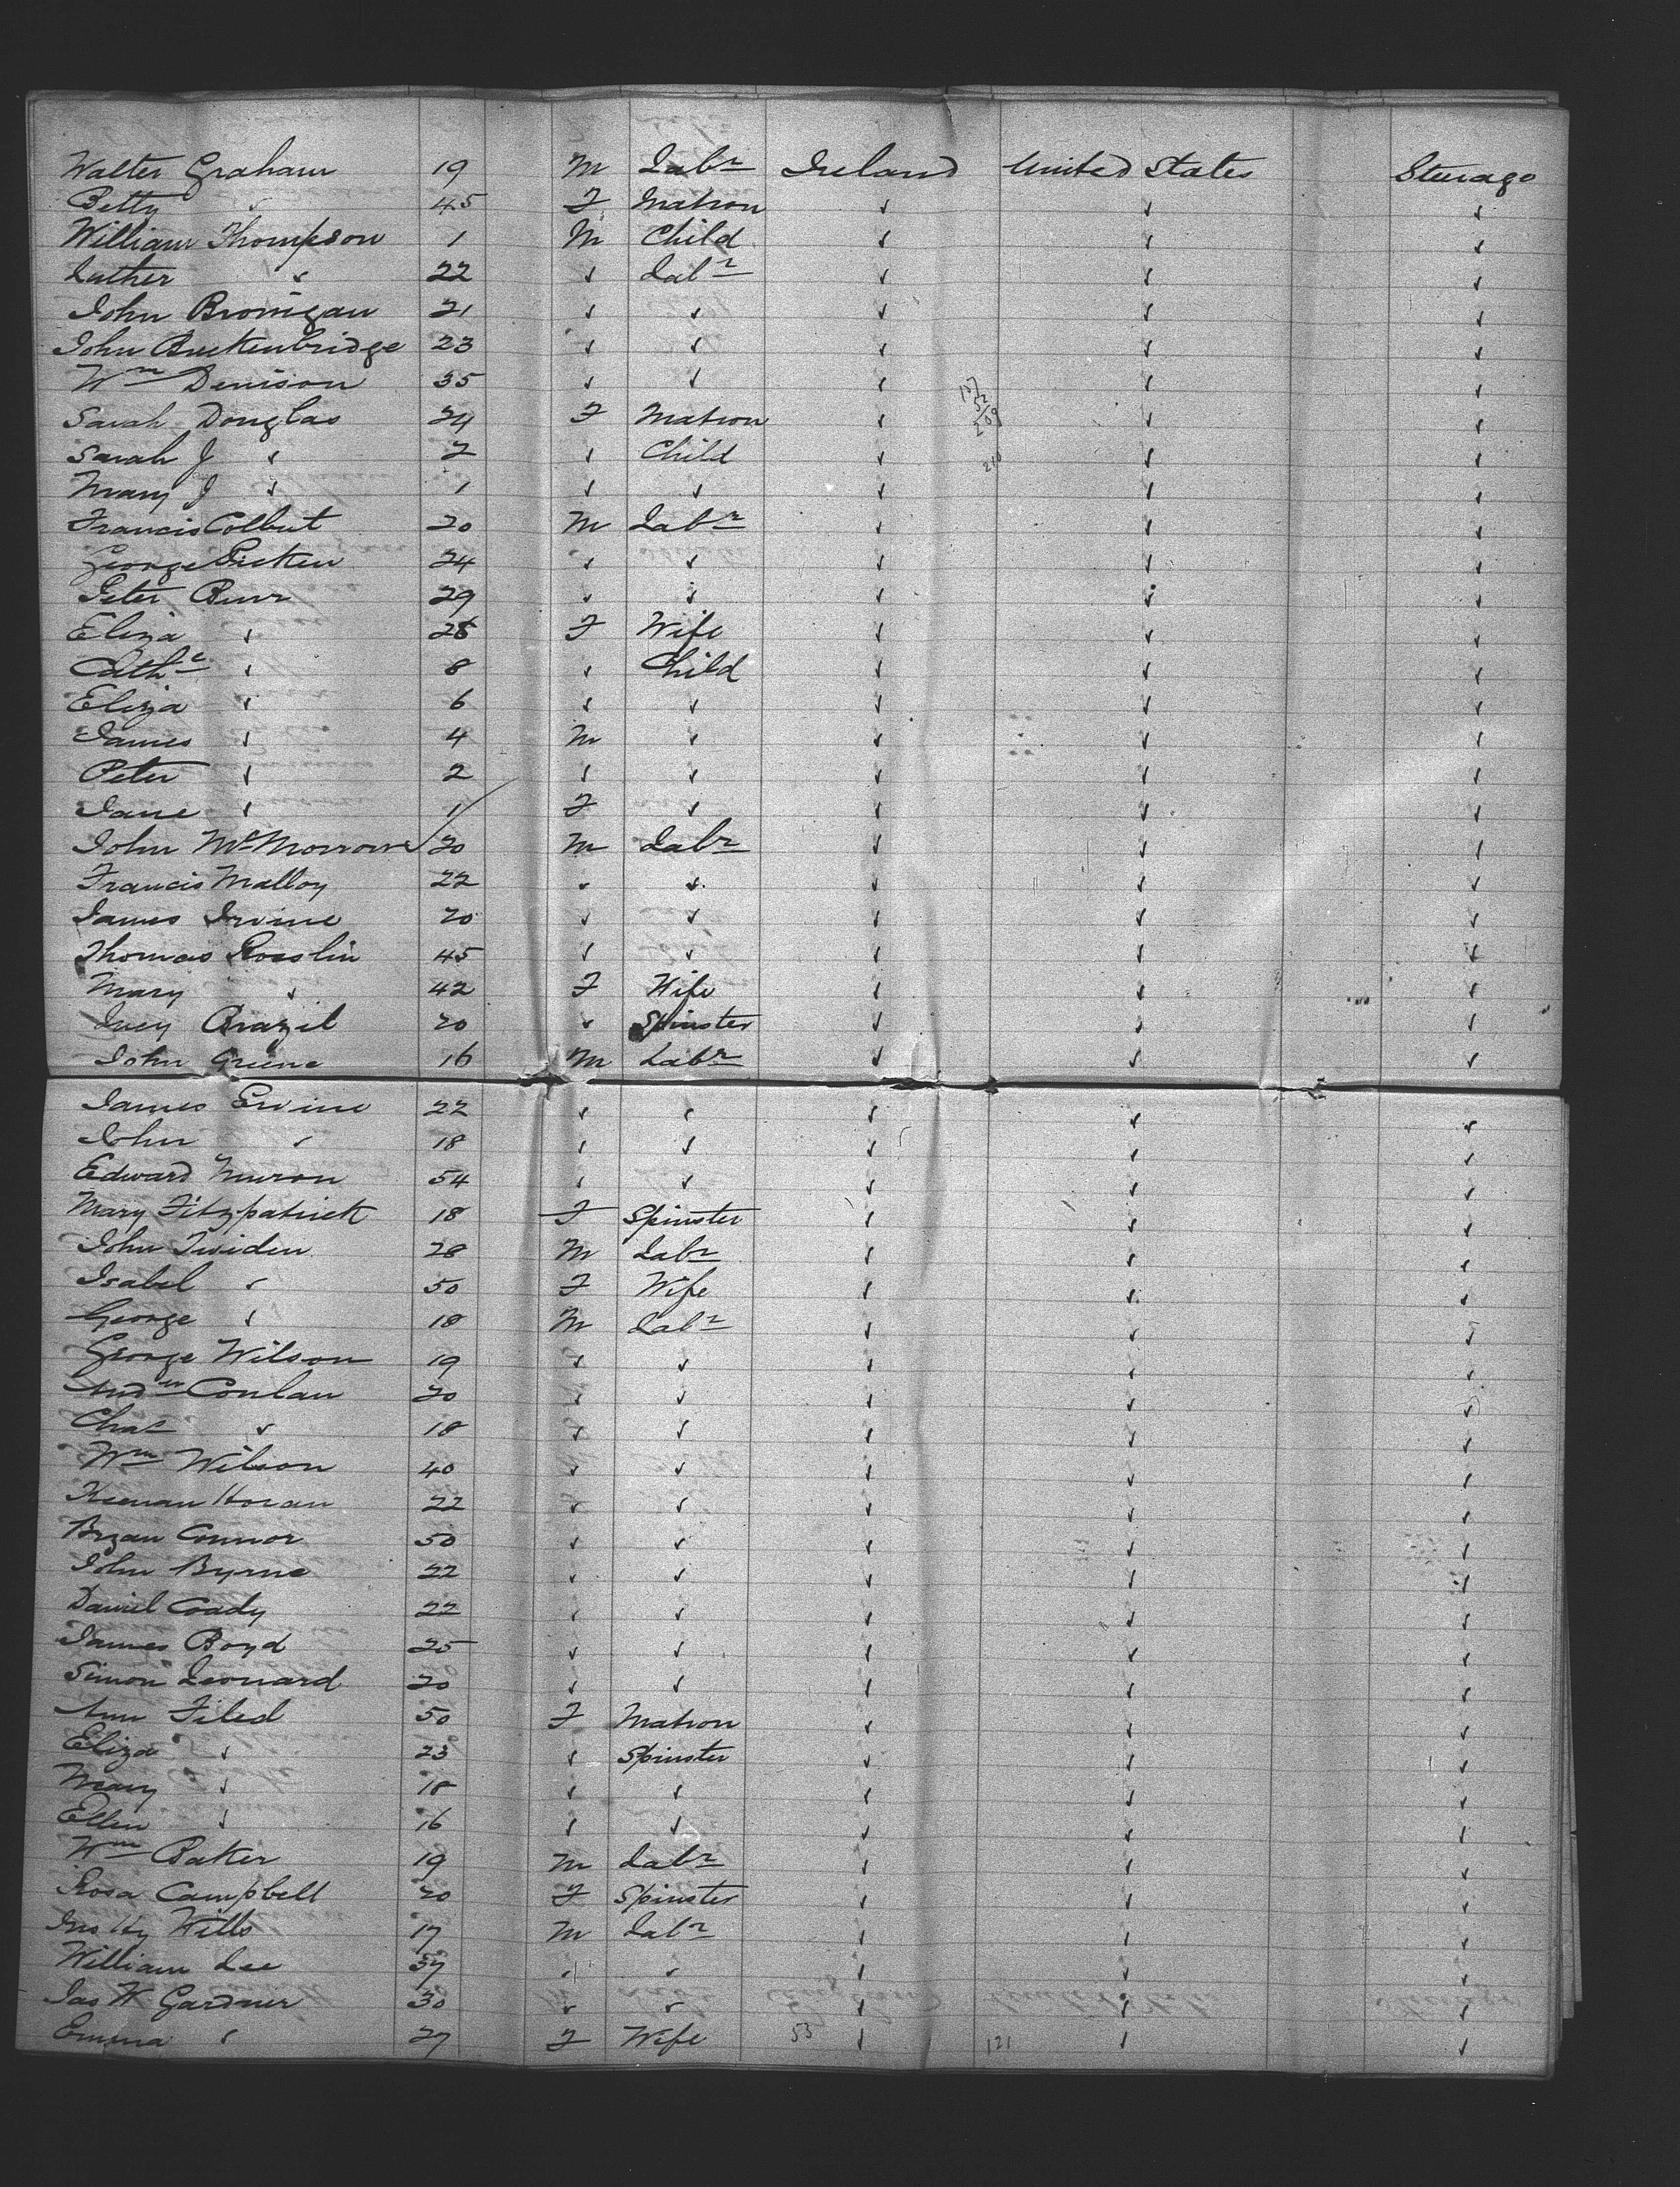 Walter Graham 19 M Labr Ireland United States Steerage
Betty " 45 F Matron " " "
William Thompson 1 M Child " " "
Luther " 22 " Labr " " "
John Bronigan 21 " " " " "
John Breckenbridge 23 " " " " "
Wm Denison 35 " " " " "
Sarah Douglas 24 F Matron " " "
Sarah J " 2 " Child " " "
Mary J " 1 " " " " "
Francis Colbert 20 M Labr " " "
George 24 " " " " "
Peter Burr 29 " " " " "
Eliza " 28 F Wife " " "
Cathe " 8 " Child " " "
Eliza " 6 " " " " "
James " 4 M " " " "
Peter " 2 " " " " "
Jane " 1 F " " " "
John McMorrow 20 M Labr " " "
Francis Malloy 22 " " " " "
James Irvine 20 " " " " "
Thomas 45 " " " " "
Mary " 42 F Wife " " "
Brazil 20 " Spinster " " "
John Greene 16 M Labr " " "
James Ervine 22 " " " " "
John " 18 " " " " "
Edward 54 " " " " "
Mary Fitzpatrick 18 F Spinster " " "
John 28 M Labr " " "
Isabel " 50 F Wife " " "
George " 18 M Labr " " "
George Wilson 19 " " " " "
Andw Conlan 20 " " " " "
Chas " 18 " " " " "
Wm Wilson 40 " " " " "
Horan 22 " " " " "
Bryan Connor 50 " " " " "
John Byrne 22 " " " " "
Daniel Coady 22 " " " " "
James Boyd 25 " " " " "
Simon Leonard 20 " " " " "
Ann Filed 50 F Matron " " "
Eliza " 23 " Spinster " " "
Mary " 18 " " " " "
Ellen " 16 " " " " "
Wm Baker 19 M Labr " " "
Rosa Campbell 20 F Spinster " " "
Jno Hy Wills 17 M Labr " " "
William Lee 37 " " " " "
Jas W Gardner 30 " " " " "
Emma " 27 F Wife 53 " 121 " "